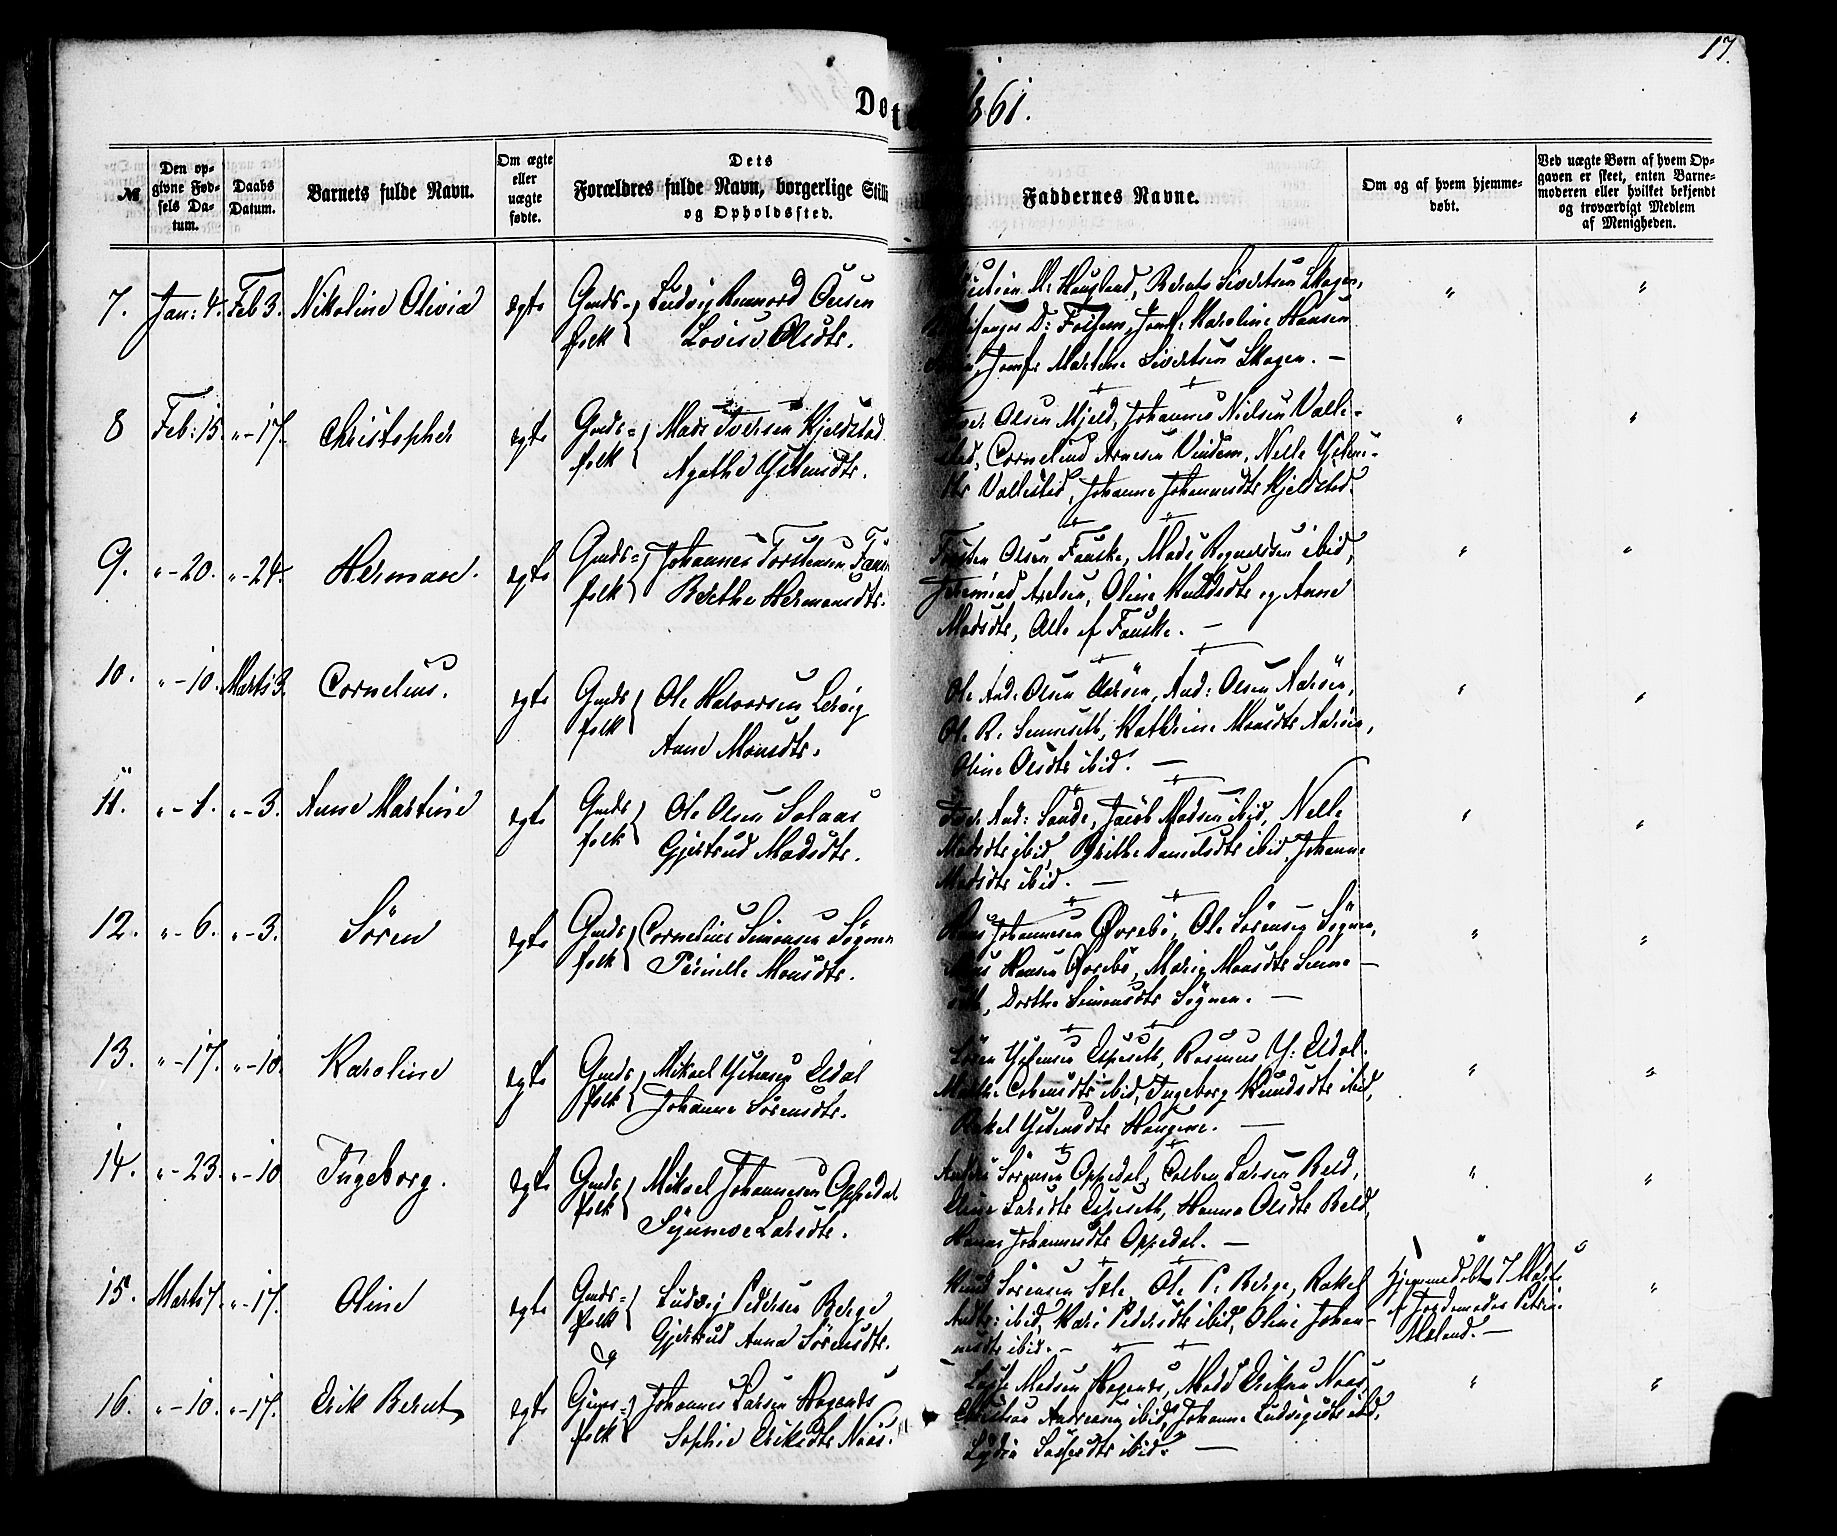 17.
Dø 1861.
№
Den opgivne Fødsels Datum.
Daabs Datum.
Barnets fulde Navn.
Om ægte eller uægte fødte.
Dets Forældres fulde Navn, borgerlige Stilli og Opholdssted.
Faddernes Navne.
Om og af hvem hjemmedøbt.
Ved uægte Børn af hvem Opgaven er skeet, enten Barnemoderen eller hvilket bekjendt og troværdigt Medlem af Menigheden.
7. Jan: 4. Feb 3. Nikoline Olivia ægte Gmds= folk
Ludvig Olsen
Lovise Olsdtr.
Haugland, Bernt Sivertsen Skagen,
D: Jomf: Karoline Hansen
Jomfr Martine Sivertsen Skagen. —
8 Feb: 15. " - 17. Christopher ægte Gmds= folk
Mads Iversen Kjeldstad
Agathe
Olsen Mjeld, Johannes Nielsen Valle-
sted, Cornelius Arnesen Vindem, Nelle
Vallested, Johanne Johannesdtr Kjeldstad.
9. " - 20. " - 24. Herman. ægte Gmds= folk
Johannes Torstensen
Berthe Hermansdtr.
Torsten Olsen Fauske, Mads Rognaldsen ibid,
Jeremias Axelsen, Oline Knudsdtr og Anne
Madsdtr, Alle af Fauske. —
10. " - 10. Marts 3. Cornelius. ægte Gmds folk
Ole Halvorsen Lervig
Anne Monsdtr.
Ole And: Olsen Aarsen, And: Olsen Aarsen,
Ole R. Senneseth, Kathrine Monsdtr Aarsen,
Oline Olsdtr ibid. —
11. " - 1. " - 3. Anne Martine ægte Gmds folk
Ole Olsen Solaas
Gjertrud Madsdtr.
Iver And: Sande, Jacob Madsen ibid, Nelle
Madsdtr ibid, Brithe Danielsdtr ibid, Johanne
Madsdtr ibid. —
12. " - 6. " - 3. Sören ægte Gmds folk
Cornelius Simonsen Sögnen
Pernille Monsdtr.
Hans Johannesen Øvrebö, Ole Sörensen Sögnen,
Hansen Øvrebö, Marie Monsdtr Senne-
seth, Dorthe Simonsdtr Sögnen. —
13. " - 17. " - 10. Karoline ægte Gmds folk
Mikael Eldal
Johanne Sörensdtr.
Sören Espeseth, Rasmus Y: Eldal.
Marthe Colbensdtr ibid, Ingeborg Knudsdtr ibid,
Rakel Haugene. —
14. " - 23. " - 10 Ingeborg. ægte Gmds folk
Mikael Johannesen Oppedal
Synneve Larsdtr.
Anders Sörensen Oppedal, Colben Larsen Beld,
Oline Larsdtr Espeseth, Hanna Olsdtr Beld,
Hanne Johannesdtr Oppedal. —
15. Marts 7. " - 17. Oline ægte Gmds= folk
Ludvig Pedersen Berge
Gjertrud Anna Sörensdtr.
Knud Sörensen Sole, Ole P. Berge, Rakel
Andtr: ibid, Kari Pedersdtr ibid, Oline Johan-
nesdtr ibid. —
Hjemmedöbt 7 Marts
af Jordemoder Petrine
Mæland. —
16. " - 10. " - 17. Erik Bernt ægte folk
Johannes Larsen
Sophie Eriksdtr Naas.
Lasse Madsen Mads Eriksen Naas,
Christian Andreasen ibid, Johanne Ludvigsdtr ibid,
Lydia Lassesdtr ibid. —